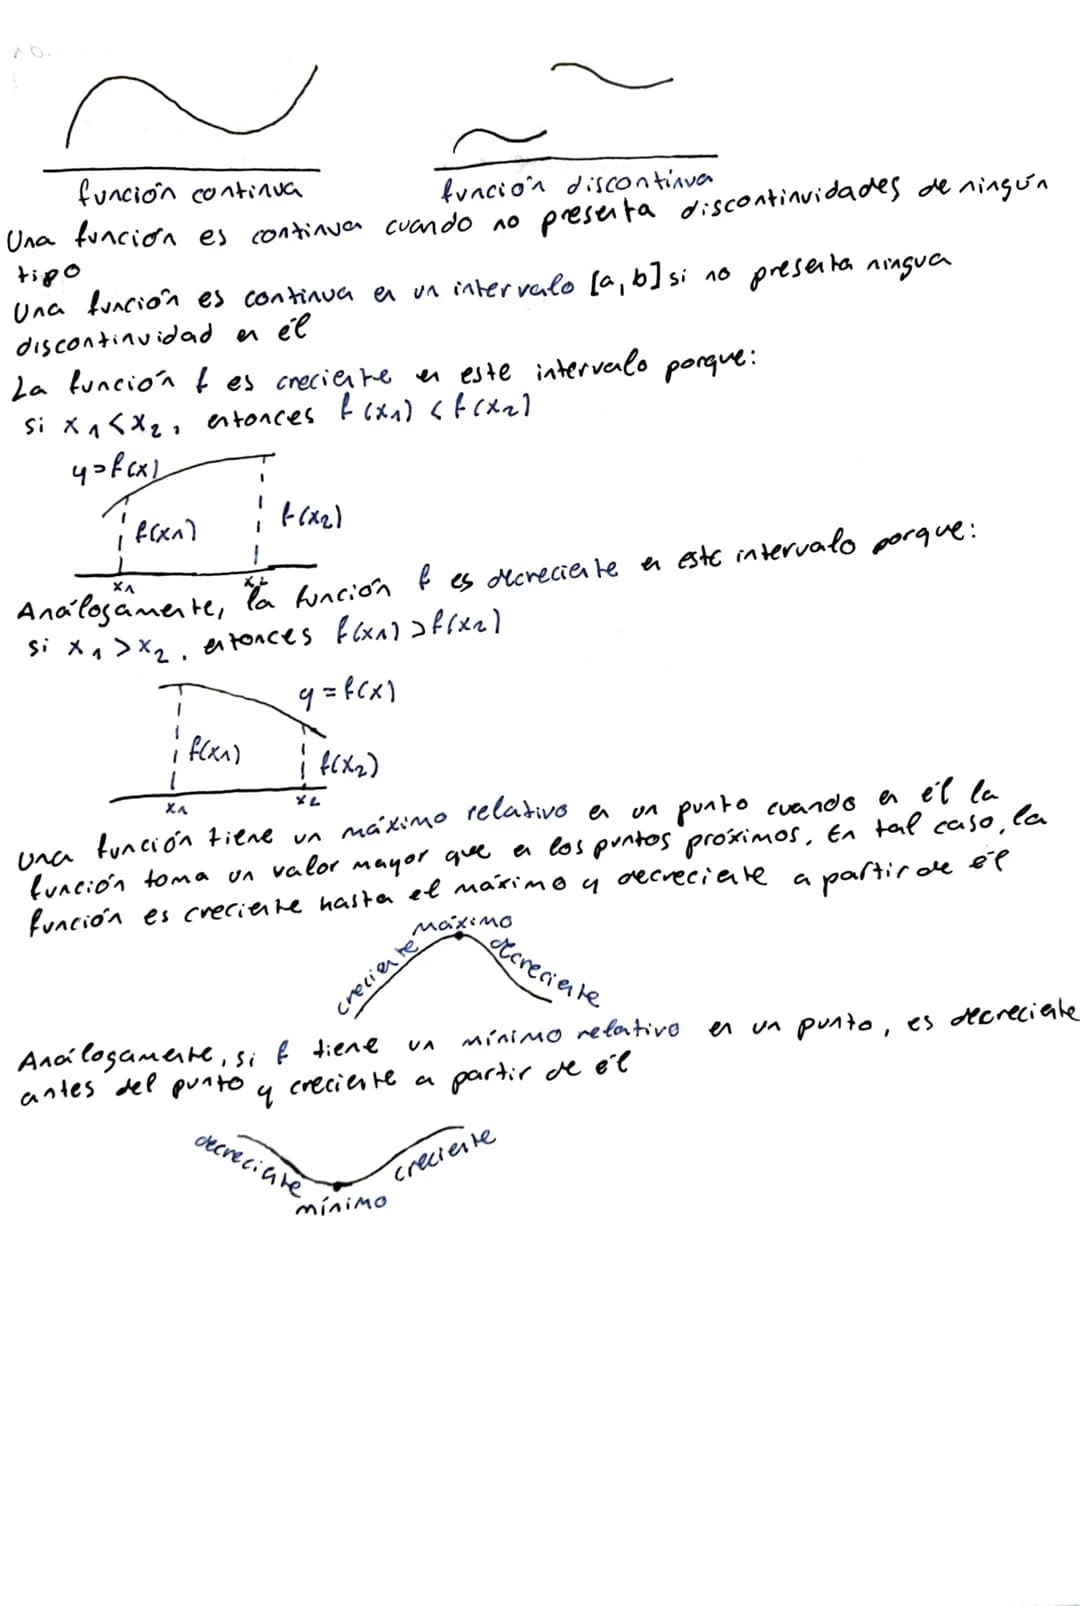 función continua
función discontinua
Una función es continua cuando no presenta discontinuidades de ningún
tipo
Una función es continua en un intervalo [a, b] si no presenta ningua
discontinuidad en él
La función f es creciente en este intervalo porque:
si x₁<x₂, entonces f(x₁) < f(x₂)
y=f(x)
f(x₁)
f(x₂)
x₁
x₂
Análogamente, la función f es decreciente en este intervalo porque:
si x₁ > x₂, entonces f(x₁) > f(x₂)
y = f(x)
f(x₁)
f(x₂)
x₁
x₂
Una función tiene un máximo relativo en un punto cuando en él la
función toma un valor mayor que en los puntos próximos. En tal caso, la
función es creciente hasta el máximo y decreciente a partir de él
máximo
creciente
decreciente
Análogamente, si f tiene un mínimo relativo en un punto, es decreciente
antes del punto y creciente a partir de él
decreciente
creciente
mínimo